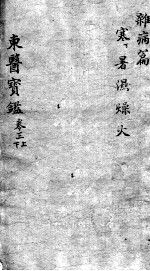 雜病篇
寒下 暑 濕 燥 火
東醫寶鑑 卷三上下